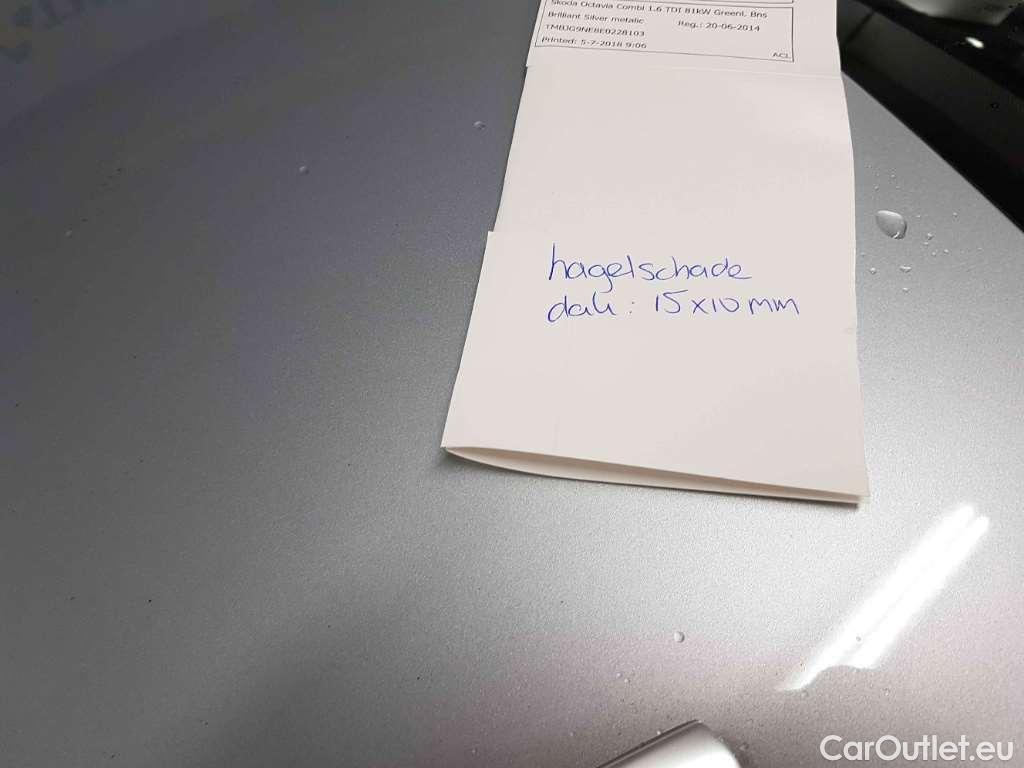 Skoda Octavia Combi 1.6 TDI 81kW Greenl. Bns
Brilliant Silver metalic Reg.: 20-06-2014
TMBJG9NE8E0228103
Printed: 5-7-2018 9:06
ACL
hagelschade
dak : 15x10mm
CarOutlet.eu